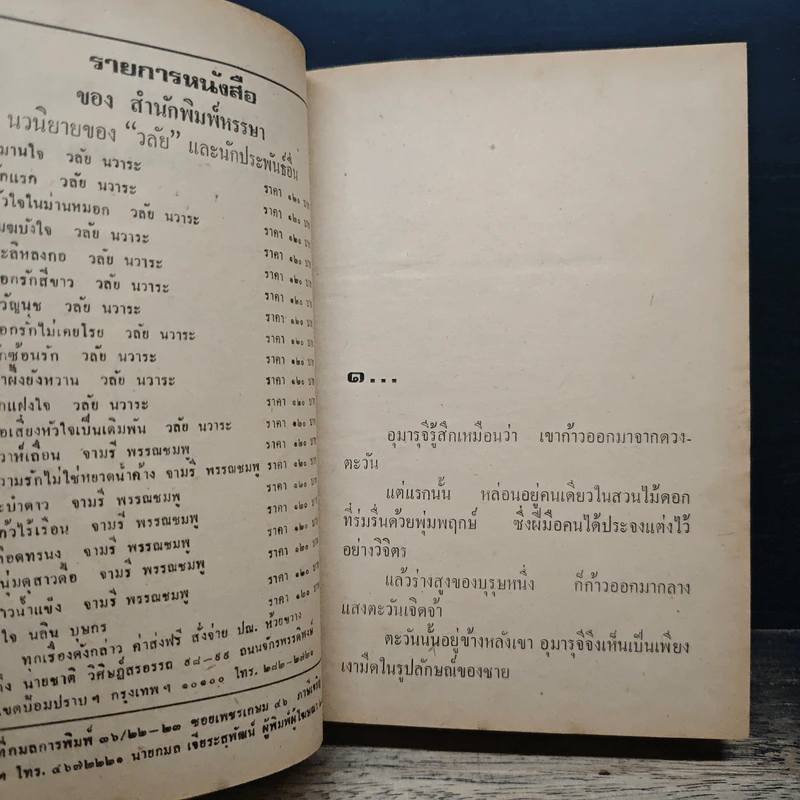 รายการหนังสือ
ของ สำนักพิมพ์หรรษา
นวนิยายของ “วลัย” และนักประพันธ์อื่น
มานใจ วลัย นวาระ ราคา ๑๒๐ บ
ักแรก วลัย นวาระ ราคา ๑๒๐ บ
ัวใจในม่านหมอก วลัย นวาระ ราคา ๑๒๐ บ
มฆบังใจ วลัย นวาระ ราคา ๑๒๐ บ
ะลีหลงกอ วลัย นวาระ ราคา ๑๒๐ บ
อกรักสีขาว วลัย นวาระ ราคา ๑๒๐ บ
วัญนุช วลัย นวาระ ราคา ๑๒๐ บ
อกรักไม่เคยโรย วลัย นวาระ ราคา ๑๒๐ บ
ักซ้อนรัก วลัย นวาระ ราคา ๑๒๐ บ
้ำผึ้งยังหวาน วลัย นวาระ ราคา ๑๒๐ บ
ักแฝงใจ วลัย นวาระ ราคา ๑๒๐ บ
อเสี่ยงหัวใจเป็นเดิมพัน วลัย นวาระ ราคา ๑๒๐ บ
วาห์เถื่อน จามรี พรรณชมพู ราคา ๑๒๐ บ
วามรักไม่ใช่หยาดน้ำค้าง จามรี พรรณชมพู ราคา ๑๒๐ บ
ะบำดาว จามรี พรรณชมพู ราคา ๑๒๐ บ
ก้วไร้เรือน จามรี พรรณชมพู ราคา ๑๒๐ บ
ลือดทรนง จามรี พรรณชมพู ราคา ๑๒๐ บ
นุ่มดุสาวดื้อ จามรี พรรณชมพู ราคา ๑๒๐ บ
าวน้ำแข็ง จามรี พรรณชมพู ราคา ๑๒๐ บ
ใจ นลิน บุษกร ราคา ๑๒๐ บ
ทุกเรื่องดังกล่าว ค่าส่งฟรี สั่งจ่าย ปณ. ห้วยขวาง
ถึง นายชาติ วิศิษฎ์สรอรรถ ๙๘-๙๙ ถนนจักรพรรดิพงษ์
เขตป้อมปราบฯ กรุงเทพฯ ๑๐๑๐๐ โทร. ๒๘๒-๒๘๒๑
ที่กมลการพิมพ์ ๓๖/๒๒-๒๓ ซอยเพชรเกษม ๔๖ ภาษีเจริญ
ฯ โทร. ๔๖๗๒๒๒๑ นายกมล เจียระสุพัฒน์ ผู้พิมพ์ผู้โฆษณา
๑...
อุมารุจีรู้สึกเหมือนว่า เขาก้าวออกมาจากดวง-
ตะวัน
แต่แรกนั้น หล่อนอยู่คนเดียวในสวนไม้ดอก
ที่ร่มรื่นด้วยพุ่มพฤกษ์ ซึ่งฝีมือคนได้ประจงแต่งไว้
อย่างวิจิตร
แล้วร่างสูงของบุรุษหนึ่ง ก็ก้าวออกมากลาง
แสงตะวันเจิดจ้า
ตะวันนั้นอยู่ข้างหลังเขา อุมารุจีจึงเห็นเป็นเพียง
เงามืดในรูปลักษณ์ของชาย